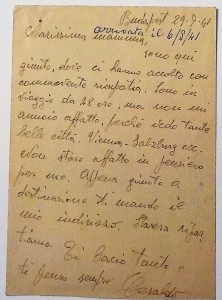 Budapest 29-7-41
arrivata il 6/8/41
Carissima mamma,
sono qui
giunto, dove ci hanno accolto con
commovente simpatia. Sono in
viaggio da 48 ore, ma non mi
annoio affatto, perché vedo tante
belle città. Vienna-Salzburg ecc.
Non stare affatto in pensiero
per me. Appena giunto a
destinazione ti mando il
mio indirizzo. Stasera ripar
tiamo. Ti bacio tanto e
ti penso sempre